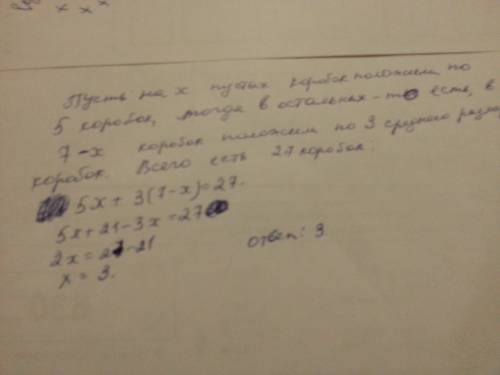 Пусть на x пустых коробок положили по
5 коробок, тогда в остальных - то есть, в
7-x коробок положили по 3 среднего
коробок. Всего есть 27 коробок:
5x + 3(7-x)=27.
5x+21-3x=27
2x=27-21
x = 3.
ответ: 3